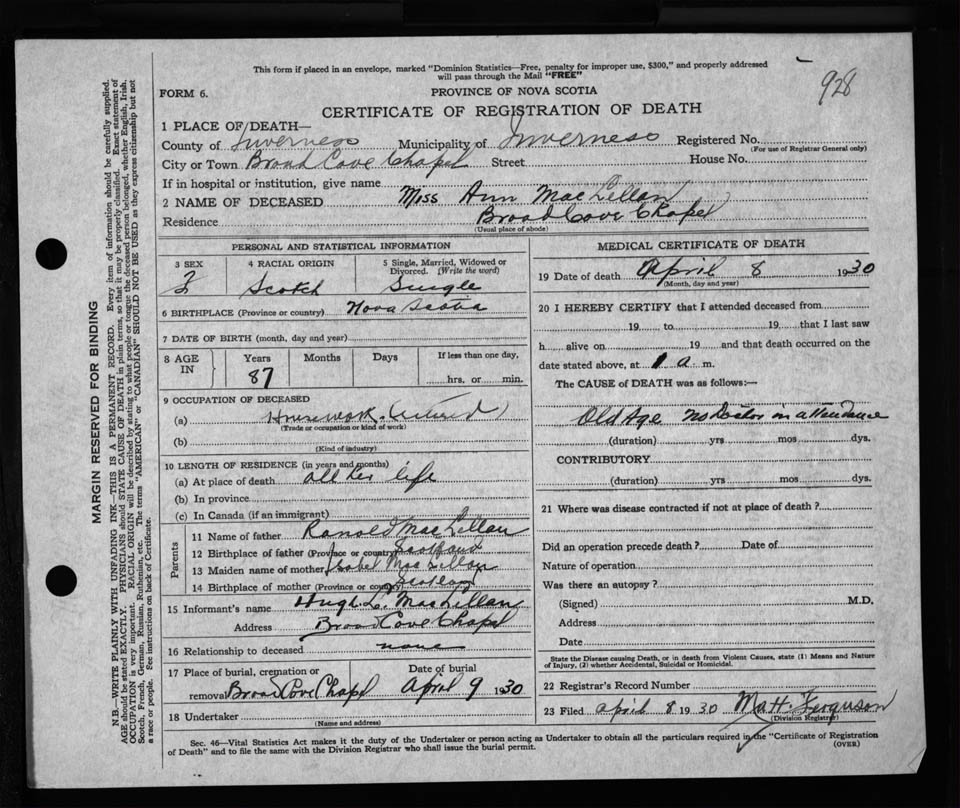 This form if placed in an envelope, marked "Dominion Statistics—Free, penalty for improper use, $300," and properly addressed
will pass through the Mail "FREE"
928
FORM 6.
PROVINCE OF NOVA SCOTIA
CERTIFICATE OF REGISTRATION OF DEATH
1 PLACE OF DEATH—
County of Inverness Municipality of Inverness Registered No.
(For use of Registrar General only)
City or Town Broad Cove Chapel Street House No.
If in hospital or institution, give name
2 NAME OF DECEASED Miss Ann MacLellan
Residence Broad Cove Chapel
(Usual place of abode)
PERSONAL AND STATISTICAL INFORMATION
3 SEX 4 RACIAL ORIGIN 5 Single, Married, Widowed or Divorced. (Write the word)
F Scotch Single
6 BIRTHPLACE (Province or country) Nova Scotia
7 DATE OF BIRTH (month, day and year)
8 AGE IN Years Months Days If less than one day,
87 hrs. or min.
9 OCCUPATION OF DECEASED
(a) Housework. retired
(Trade or occupation or kind of work)
(b)
(Kind of industry)
10 LENGTH OF RESIDENCE (in years and months)
(a) At place of death all her life
(b) In province
(c) In Canada (if an immigrant)
Parents
11 Name of father Ranold MacLellan
12 Birthplace of father (Province or country) Scotland
13 Maiden name of mother Isabel MacLellan
14 Birthplace of mother (Province or country) Scotland
15 Informant's name Hugh L. MacLellan
Address Broad Cove Chapel
16 Relationship to deceased none
17 Place of burial, cremation or Date of burial
removal Broad Cove Chapel April 9 1930
18 Undertaker
(Name and address)
MEDICAL CERTIFICATE OF DEATH
19 Date of death April 8 1930
(Month, day and year)
20 I HEREBY CERTIFY that I attended deceased from
19 to 19 that I last saw
h alive on 19 and that death occurred on the
date stated above, at 1 a. m.
The CAUSE of DEATH was as follows:—
Old Age no doctor in attendance
(duration) yrs mos dys.
CONTRIBUTORY
(duration) yrs mos dys.
21 Where was disease contracted if not at place of death?
Did an operation precede death? Date of
Nature of operation
Was there an autopsy?
(Signed) M.D.
Address
Date
State the Disease causing Death, or in death from Violent Causes, state (1) Means and Nature
of Injury, (2) whether Accidental, Suicidal or Homicidal.
22 Registrar's Record Number
23 Filed april 8 1930 Matt. Ferguson
(Division Registrar)
Sec. 46—Vital Statistics Act makes it the duty of the Undertaker or person acting as Undertaker to obtain all the particulars required in the "Certificate of Registration
of Death" and to file the same with the Division Registrar who shall issue the burial permit. (OVER)
MARGIN RESERVED FOR BINDING
N.B.—WRITE PLAINLY WITH UNFADING INK—THIS IS A PERMANENT RECORD. Every item of information should be carefully supplied.
AGE should be stated EXACTLY. PHYSICIANS should STATE CAUSE OF DEATH in plain terms, so that it may be properly classified. Exact statement of
OCCUPATION is very important. RACIAL ORIGIN will be described by stating to what people or tongue the deceased person belonged, whether English, Irish,
Scotch, French, German, Russian, Ruthenian, etc. The terms "AMERICAN" or "CANADIAN" SHOULD NOT BE USED as they express citizenship but not
a race or people. See instructions on back of Certificate.